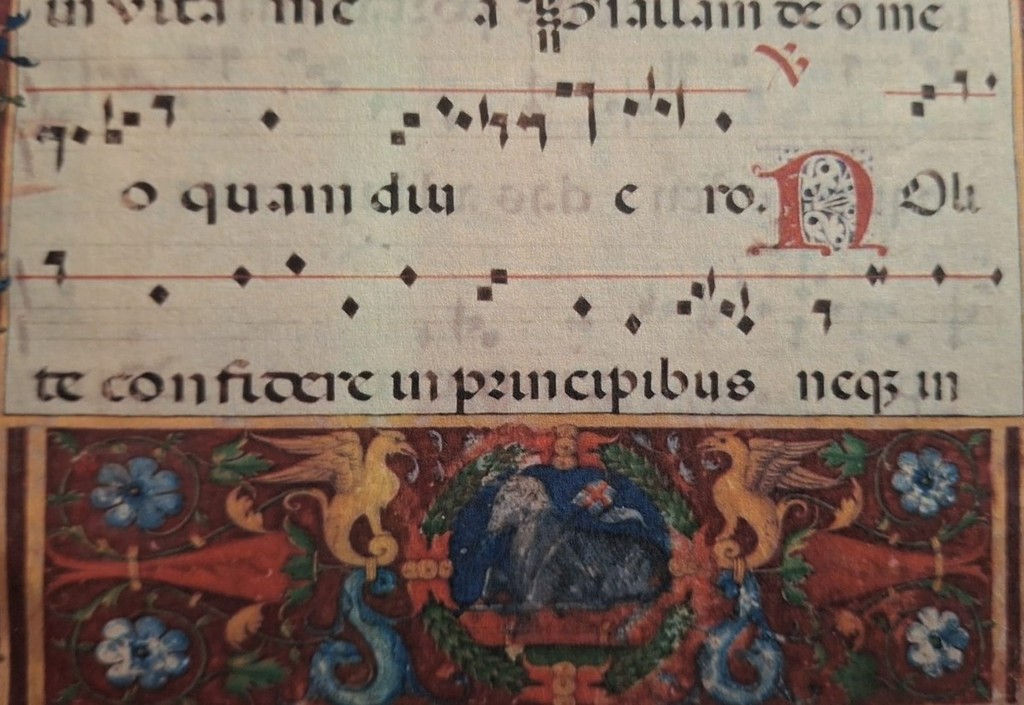 in vita me a psallam deo me
o quam diu e ro. ℣ Noli
te confidere in principibus neqꝫ in